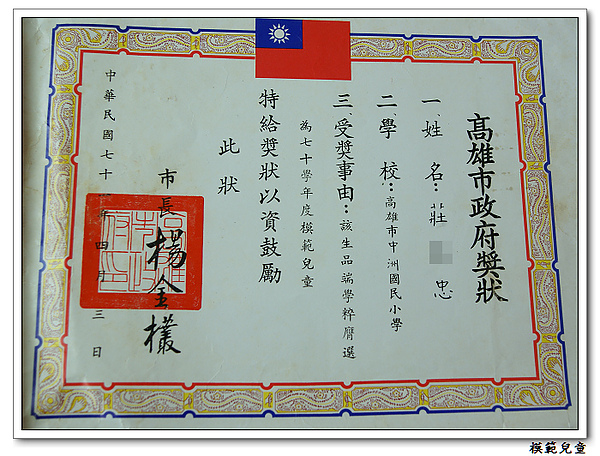 高雄市政府獎狀
一、姓名：莊 忠
二、學校：高雄市中洲國民小學
三、受獎事由：該生品端學粹膺選
為七十學年度模範兒童
特給獎狀以資鼓勵
此狀
市長 楊金欉
中華民國七十 年四月 三日
模範兒童